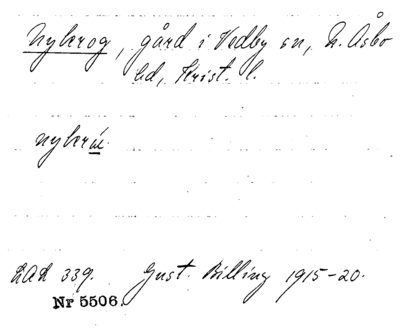 Nykrog, gård i Vedby sn, N. Åsbo
hd, Krist. l.
LAL 339. Gust. Billing 1915-20.
Nr 5506.